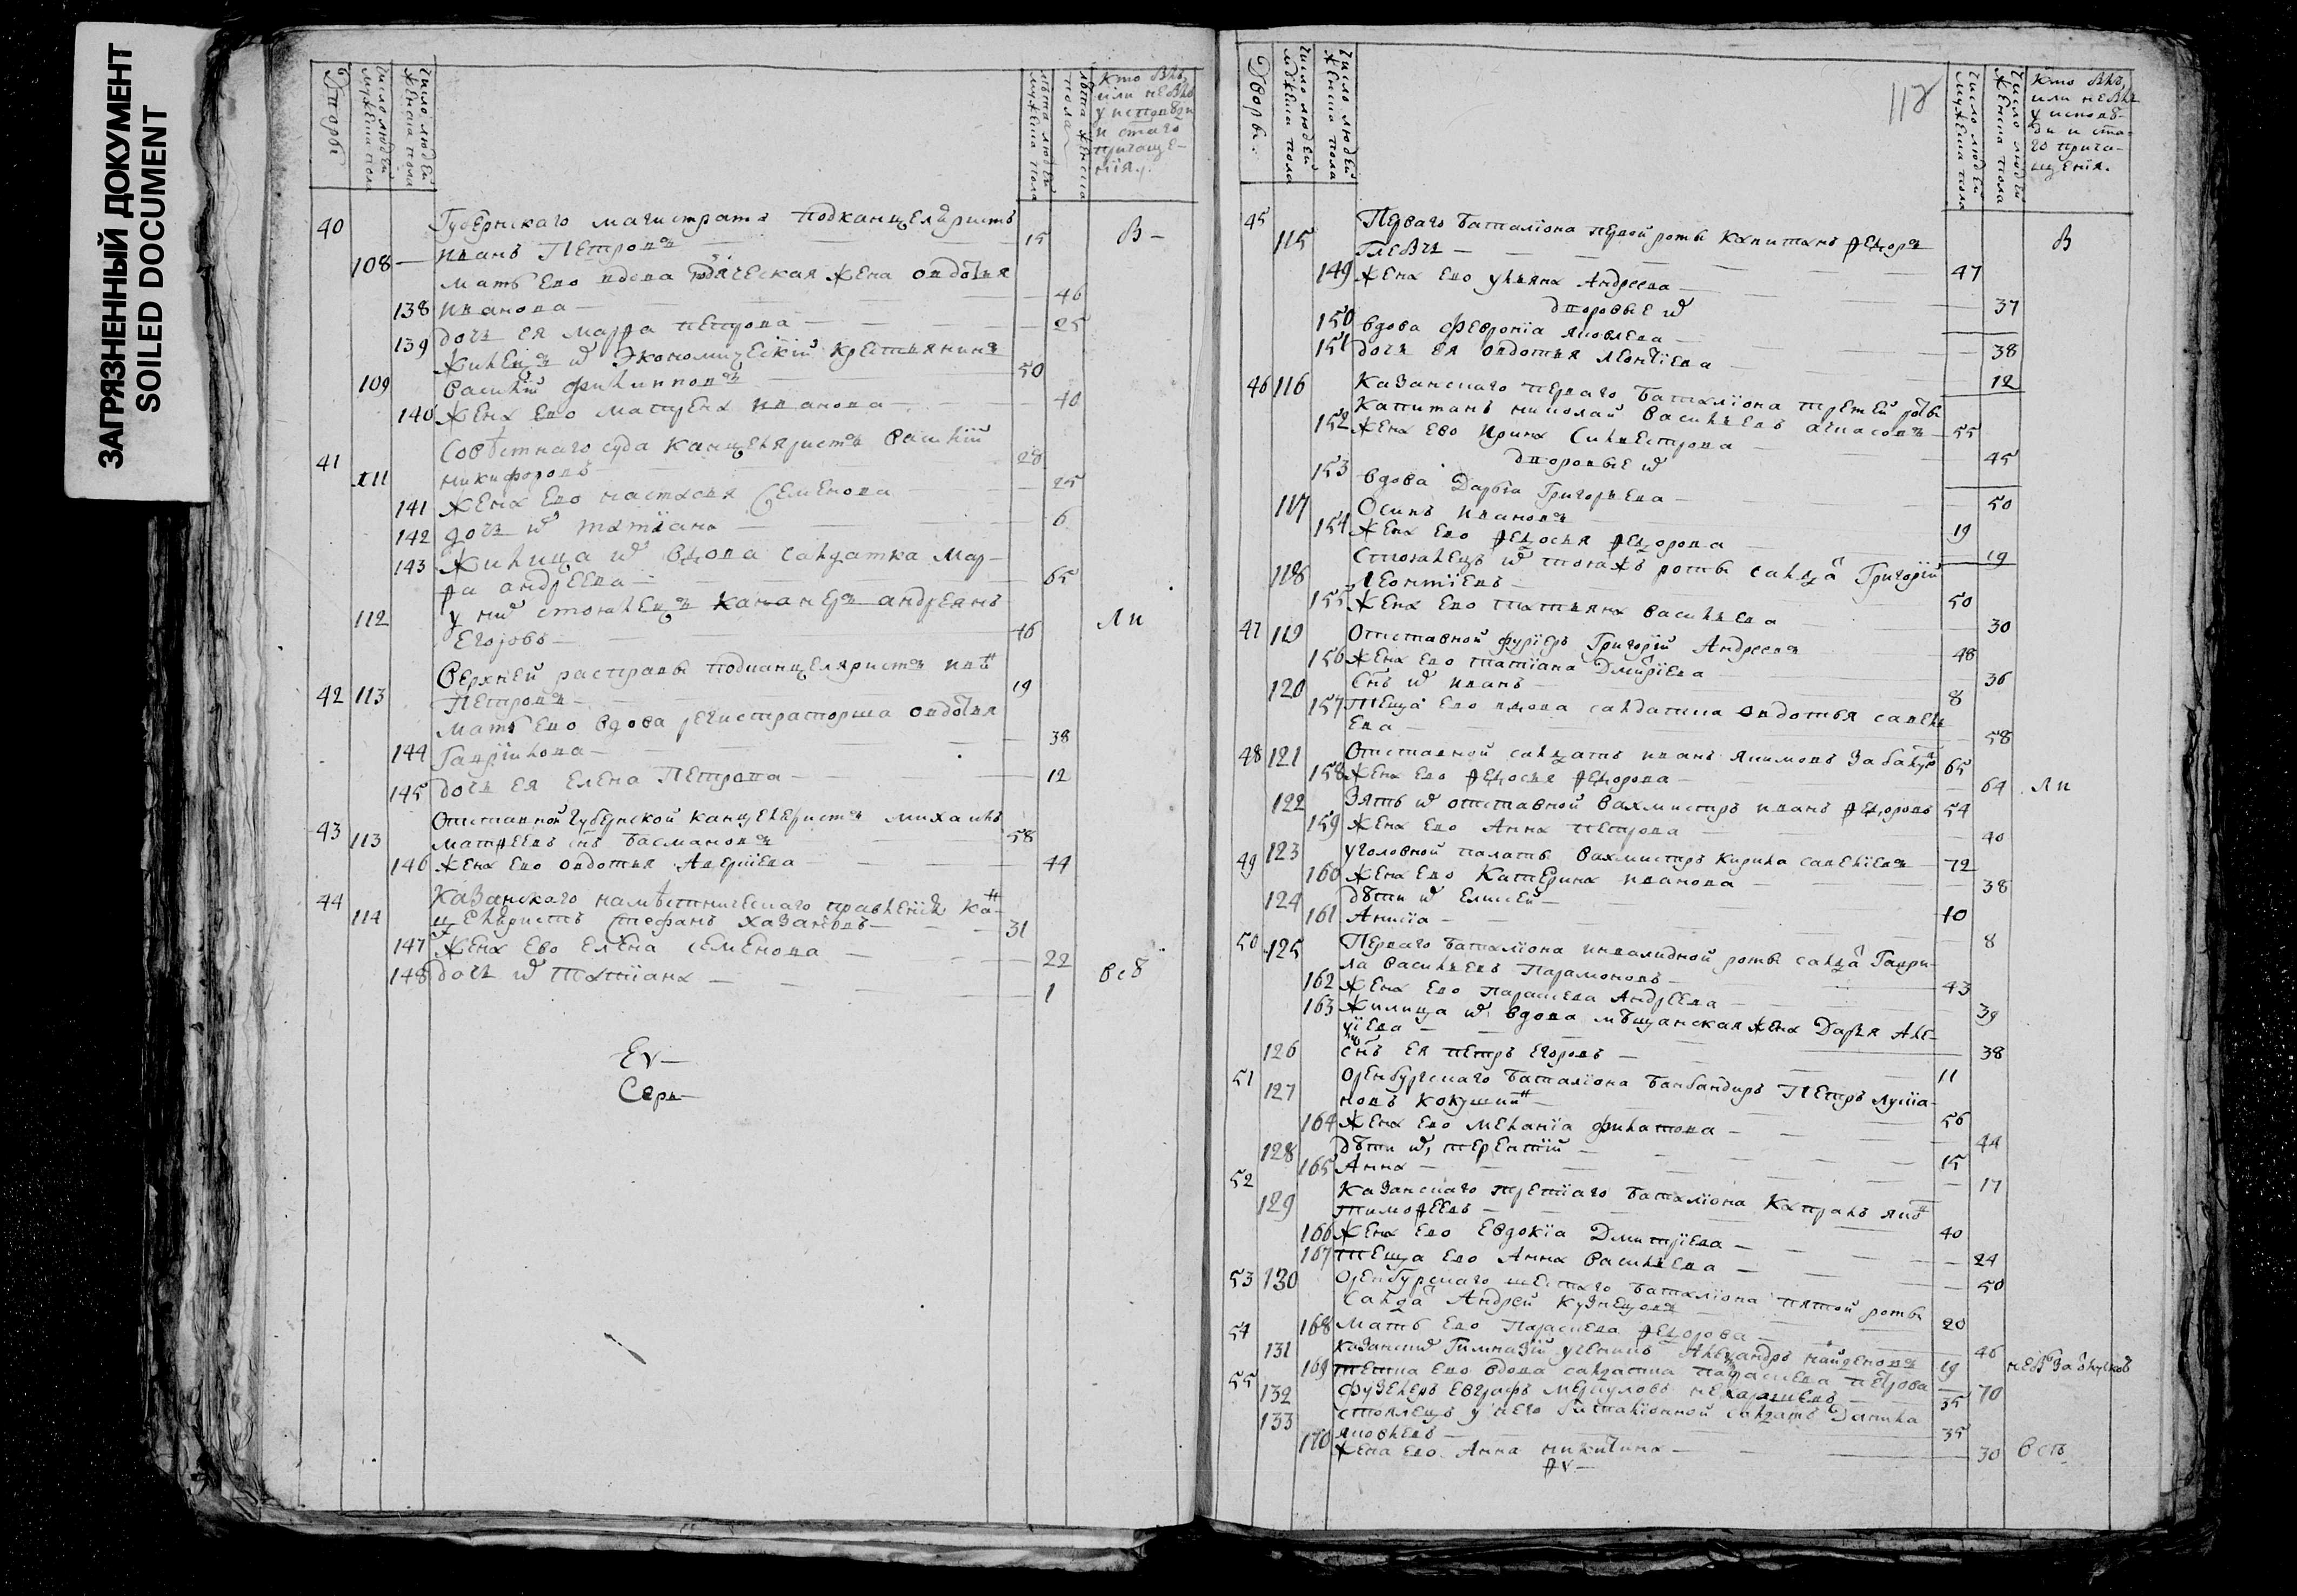 ЗАГРЯЗНЕННЫЙ ДОКУМЕНТ
SOILED DOCUMENT
Дворы
число людей мужеска пола
число людей женска пола
лѣта людей мужеска пола
лѣта женска пола
Кто былъ,
или не былъ
у исповѣди
и стаго
причаще-
нія.
40
Губернскаго магистрата подканцеляристъ
108 Иванъ Петровъ 15 В
Мать ево вдова женa овдотья
138 Иванова 46
139 дочь ея Марѳа Петрова 25
Жилецъ и Экономическій Крестьянинъ
109 Василій Филипповъ 50
140 Жена ево Матрена Иванова 40
41 Совѣтнаго суда Канцеляристъ Василій
111 Никифоровъ 28
141 Жена ево Настасья Семенова 25
142 дочь их Татіана 6
143 Жилица их вдова салдатка Мар-
ѳа Андреева 65
112 у них стоялецъ Кананеръ Андреянъ
Егоровъ 46 ли
Верхней расправы подканцеляристъ Ивнъ
42 113 Петровъ 19
Мать ево вдова регистраторша овдотья
144 Гаврилова 38
145 дочь ея Елена Петрова 12
Отставной губернской канцеляристъ Михаилъ
43 113 Матѳеевъ снъ Басмановъ 58
146 Жена ево овдотья 44
44 Казанскаго намѣстническаго правленія Кан-
114 целяристъ Стефанъ Хазановъ 31
147 Жена ево Елена Семенова 22
148 дочь их Татіана 1
Дворы.
число людей мужеска пола
число людей женска пола
112
число людей мужеска пола
число людей женска пола
Кто былъ,
или не былъ
у исповѣ-
ди и ста-
го прича-
щенія.
45 115 Перваго баталіона первой роты Капитанъ Ѳедоръ
Глевъ 47 В
149 Жена ево Ульяна Андреева 37
дворовые их
150 вдова Февронія Яковлева 38
151 дочь ея овдотья Леонтіева 12
46 116 Казанскаго перваго баталіона третей роты
Капитанъ Николай Васильевъ 55
152 Жена ево Ирина Силвестрова 45
дворовые их
153 вдова Дарья Григорьева 50
117 Осипъ Ивановъ 19
154 Жена ево Ѳедосья Ѳедорова 19
Стоялецъ их тояжъ роты салда Григорій
118 Леонтіевъ 50
155 Жена ево Татьяна Васильева 30
47 119 Отставной фуріеръ Григорій Андреевъ 48
156 Жена ево Татіана Дмитріева 36
120 снъ их Иванъ 8
157 Теща ево вдова салдатка овдотья савель
ева 58
48 121 Отставной салдатъ Иванъ Якимовъ 65
158 Жена ево Ѳедосья Ѳедорова 64 ли
122 Зять их отставной Вахмистръ Иванъ Ѳедоровъ 54
159 Жена ево Анна Петрова 40
49 123 Уголовной палаты Вахмистръ Кирила савельевъ 72
160 Жена ево Катерина Иванова 38
124 дѣти их Елисей 10
161 Анисіа 8
50 125 Перваго баталіона инвалидной роты салда Гаври-
ла Васильевъ Парамоновъ 43
162 Жена ево Параскева Андреева 39
163 Жилица их вдова мѣщанская жена Дарья Але-
38
126 снъ ея Петръ Егоровъ 11
51 127 Оренбургскаго баталіона Банбандиръ Петръ Лукіа-
новъ Кокушкин 56
164 Жена ево Меланіа Филатова 44
128 дѣти их, Терентій 15
165 Анна 17
52 Казанскаго третіаго баталіона Капралъ
129 Тимоѳеевъ 40
166 Жена ево Евдокіа Дмитріева 24
167 Теща ево Анна Васильева 50
53 130 Оренбургскаго шестаго баталіона пятой роты
салда Андрей Кузнецовъ 20
168 Мать ево Параскева Ѳедорова 46
54 131 Казанских Гимназій ученикъ Александръ Найденовъ 19
169 тетка ево вдова салдатка Параскева Петрова 70
55 132 Фузелеръ Евграфъ Меркуловъ 35
133 стоялецъ у него баталіонной салдатъ Данила
Яковлевъ 35
170 Жена ево Анна Никитина 30